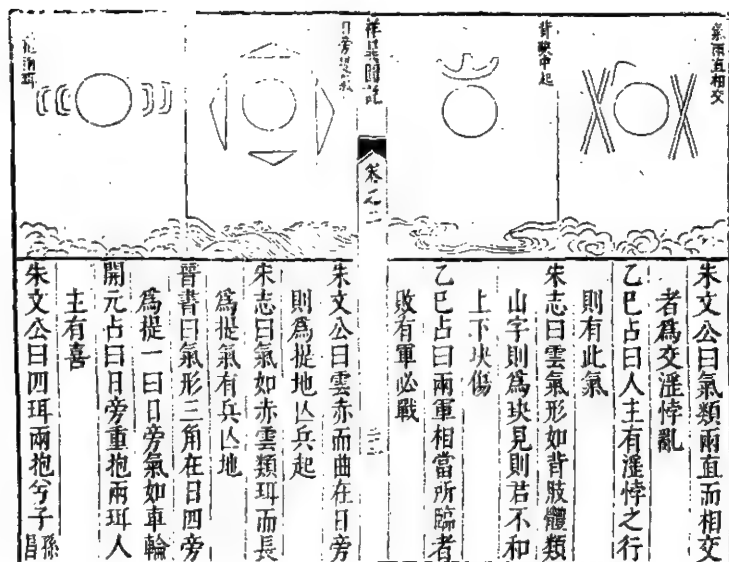 氣兩直相交
朱文公曰氣類兩直而相交
者爲交淫悖亂
乙巳占曰人主有淫悖之行
則有此氣
背玦中起
朱志曰雲氣形如背肢體類
山字則爲玦見則若不和
上下玦傷
乙巳占曰兩軍相當所臨者
敗有軍必戰
祥異圖說
卷之二
日旁提
朱文公曰雲赤而曲在日旁
則爲提地亾兵起
宋志曰氣如赤雲類珥而長
爲提氣有兵亾地
晉書曰氣形三角在日四旁
爲提一曰日旁氣如車輪
抱兩珥
開元占曰日旁重抱兩珥人
主有喜
朱文公曰四珥兩抱兮子孫昌